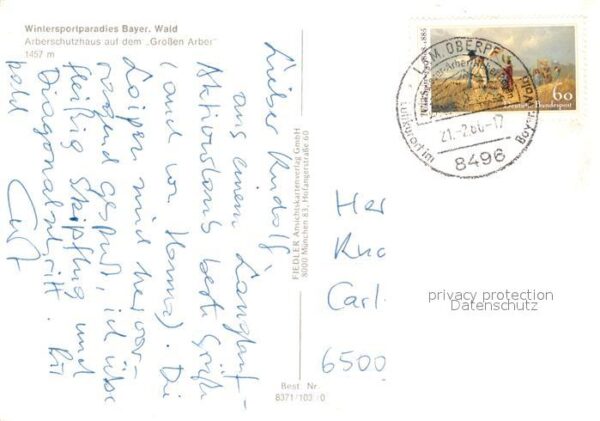 Wintersportparadies Bayer. Wald
Arberschutzhaus auf dem „Großen Arber"
1457 m
Lieber Rudolf,
aus einem Langlauf-
Aktivurlaub beste Grüße
(auch von Hanna). Die
Loipen sind hervor-
ragend gespurt, ich übe
fleißig Skipflug und
Diagonalschritt. Bis
bald Curt
FIEDLER Ansichtskartenverlag GmbH
8000 München 83, Hofangerstraße 60
Best Nr.
8371/103
60
Deutsche Bundespost
LAM, OBERPF
Luftkurort im Bayer.
21.-2.86-17
8496
Her
Ruc
Carl
6500
privacy protection
Datenschutz